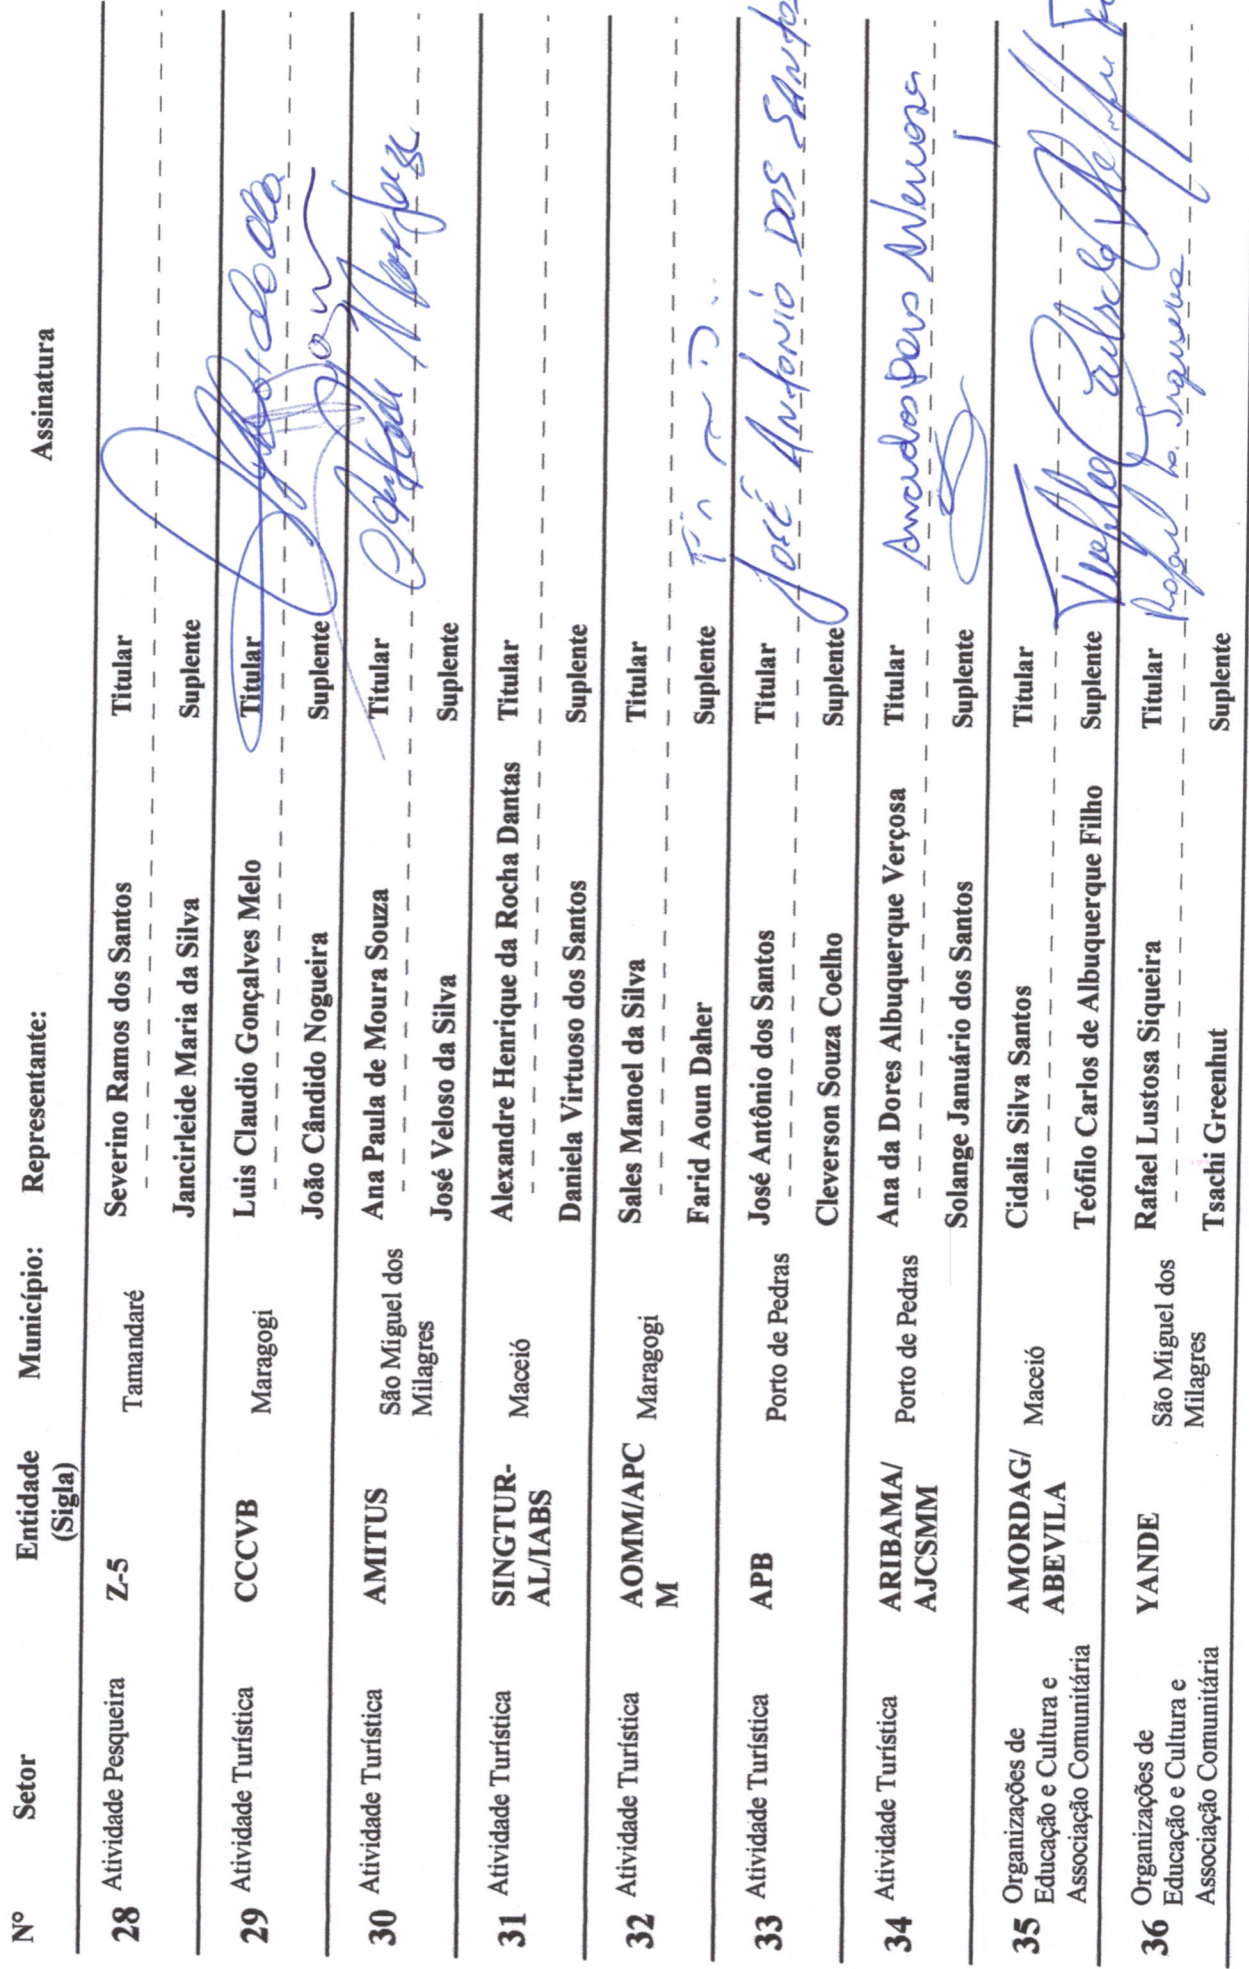 Nº Setor Entidade (Sigla) Município: Representante: Assinatura
28 Atividade Pesqueira Z-5 Tamandaré Severino Ramos dos Santos Titular
Jancirleide Maria da Silva Suplente
29 Atividade Turística CCCVB Maragogi Luis Claudio Gonçalves Melo Titular
João Cândido Nogueira Suplente
30 Atividade Turística AMITUS São Miguel dos Milagres Ana Paula de Moura Souza Titular
José Veloso da Silva Suplente
31 Atividade Turística SINGTUR-AL/IABS Maceió Alexandre Henrique da Rocha Dantas Titular
Daniela Virtuoso dos Santos Suplente
32 Atividade Turística AOMM/APCM Maragogi Sales Manoel da Silva Titular
Farid Aoun Daher Suplente
33 Atividade Turística APB Porto de Pedras José Antônio dos Santos Titular JOSÉ ANTONIO DOS SANTOS
Cleverson Souza Coelho Suplente
34 Atividade Turística ARIBAMA/AJCSMM Porto de Pedras Ana da Dores Albuquerque Verçosa Titular
Solange Januário dos Santos Suplente
35 Organizações de Educação e Cultura e Associação Comunitária AMORDAG/ABEVILA Maceió Cidalia Silva Santos Titular
Teófilo Carlos de Albuquerque Filho Suplente
36 Organizações de Educação e Cultura e Associação Comunitária YANDE São Miguel dos Milagres Rafael Lustosa Siqueira Titular
Tsachi Greenhut Suplente